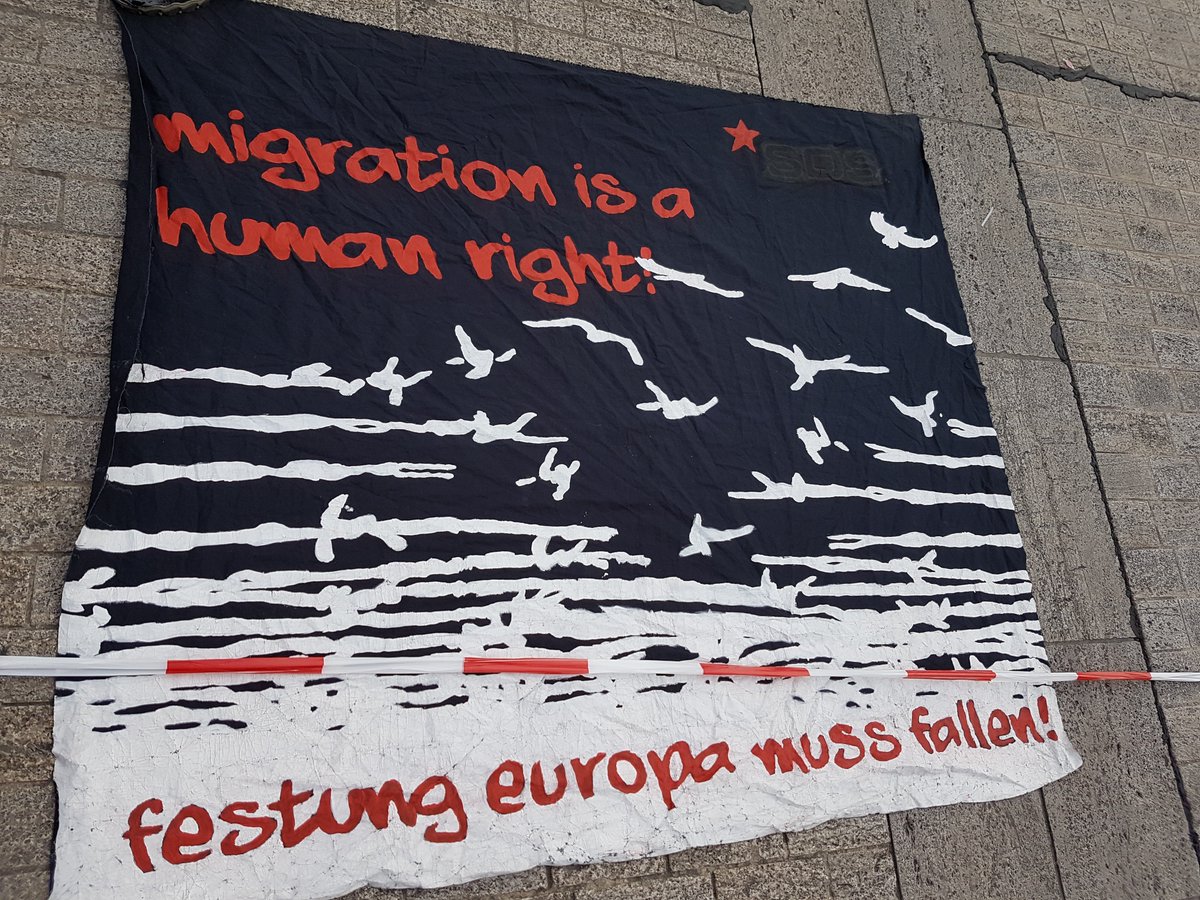 migration is a
human right!
festung europa muss fallen!